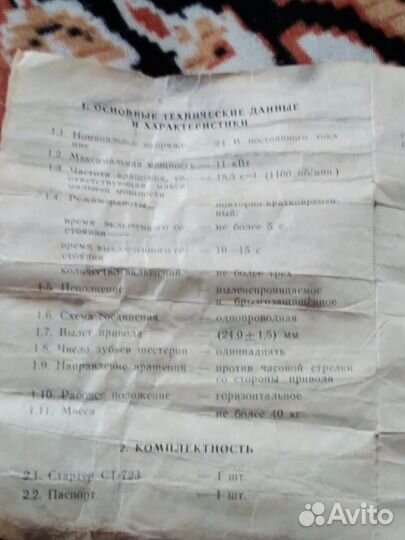 1. ОСНОВНЫЕ ТЕХНИЧЕСКИЕ ДАННЫЕ
И ХАРАКТЕРИСТИКИ
1.1. Номинальное напряже- — 24 В постоянного тока
ние
1.2. Максимальная мощность — 11 кВт
1.3. Частота вращения, со- — 18,3 с⁻¹ (1100 об/мин)
ответствующая макси-
мальной мощности
1.4. Режим работы — повторно-кратковремен-
ный:
время включенного со- — не более 5 с
стояния
время выключенного со- — 10—15 с
стояния
количество включений — не более трех
1.5. Исполнение — пыленепроницаемое
и брызгозащищённое
1.6. Схема соединения — однопроводная
1.7. Вылет привода — (24,0 ± 1,5) мм
1.8. Число зубьев шестерни — одиннадцать
1.9. Направление вращения — против часовой стрелки
со стороны привода
1.10. Рабочее положение — горизонтальное
1.11. Масса — не более 40 кг
2. КОМПЛЕКТНОСТЬ
2.1. Стартер СТ-723 — 1 шт.
2.2. Паспорт — 1 шт.
Avito